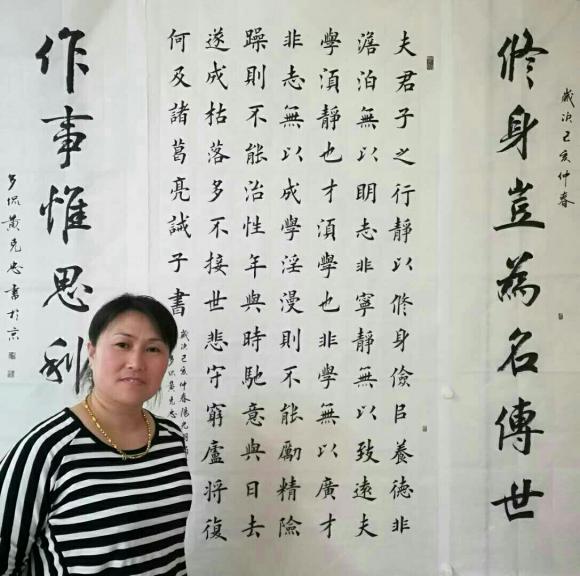 歲次己亥仲春
修身豈為名傳世
夫君子之行靜以修身儉㠯養德非
澹泊無以明志非寧靜無以致遠夫
學湏靜也才湏學也非學無以廣才
非志無以成學淫漫則不能勵精險
躁則不能治性年與時馳意與日去
遂成枯落多不接世悲守窮廬將復
何及諸葛亮誡子書
歲次己亥仲春
黃克忠
作事惟思利
黃克忠書於京